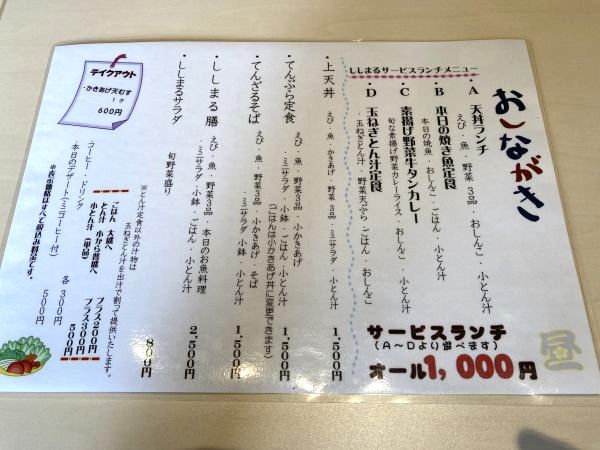 おしながき
昼
ししまるサービスランチメニュー
A 天丼ランチ
えび・魚・野菜3品・おしんこ・小とん汁
B 本日の焼き魚定食
本日の焼魚・おしんこ・ごはん・小とん汁
C 素揚げ野菜牛タンカレー
旬な素揚げ野菜カレーライス・おしんこ・小とん汁
D 玉ねぎとん汁定食
玉ねぎとん汁・野菜天ぷら・ごはん・おしんこ
サービスランチ
(A〜Dより選べます)
オール1,000円
・上天丼
えび・魚・かきあげ・野菜3品・ミニサラダ・小とん汁
1,500円
・てんぷら定食
えび・魚・野菜3品・小かきあげ
・ミニサラダ・小鉢・ごはん・小とん汁
(ごはんは小かきあげ丼に変更できます)
1,500円
・てんざるそば
えび・魚・野菜3品・小かきあげ・そば
・ミニサラダ・小鉢・小とん汁
1,500円
・ししまる膳
えび・魚・野菜3品・本日のお魚料理
・ミニサラダ・小鉢・ごはん・小とん汁
2,500円
・ししまるサラダ
旬野菜盛り
800円
※とん汁定食以外の汁物は
玉ねぎとん汁を出汁で割って提供いたします。
ごはん 大盛へ プラス200円
とん汁 小から普通へ プラス300円
小とん汁(単品) 500円
コーヒー・ドリンク 各300円
本日のデザート(ミニコーヒー付) 500円
※表示価格はすべて税込み料金です。
テイクアウト
・かきあげ天むす
1ケ
600円